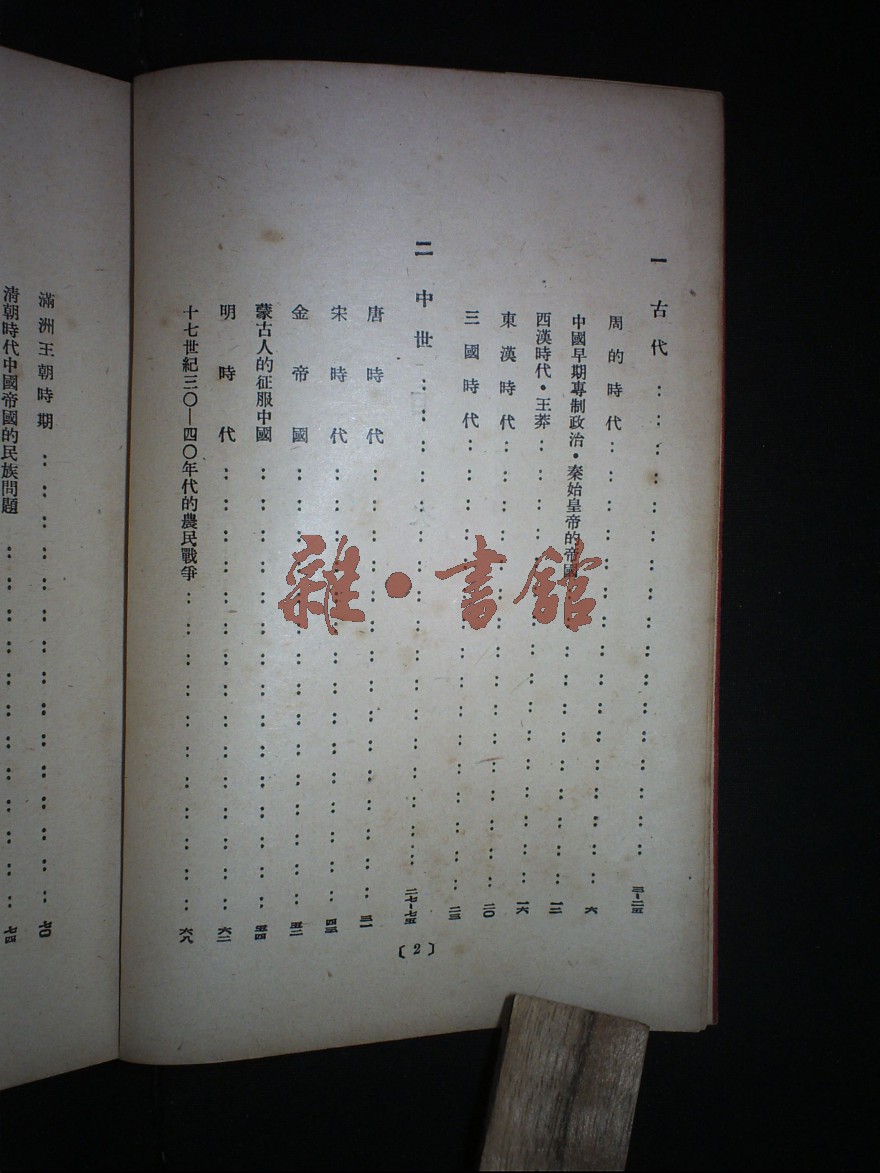 一 古代………三–二五
周的時代………六
中國早期專制政治·秦始皇帝的帝國………一二
西漢時代·王莽………一六
東漢時代………二〇
三國時代………二三
二 中世………二七–七五
唐時代………三一
宋時代………四三
金帝國………五二
蒙古人的征服中國………五四
明時代………六二
十七世紀三〇—四〇年代的農民戰爭………六八
〔2〕
滿洲王朝時期………七〇
清朝時代中國帝國的民族問題………七四
雜·書館